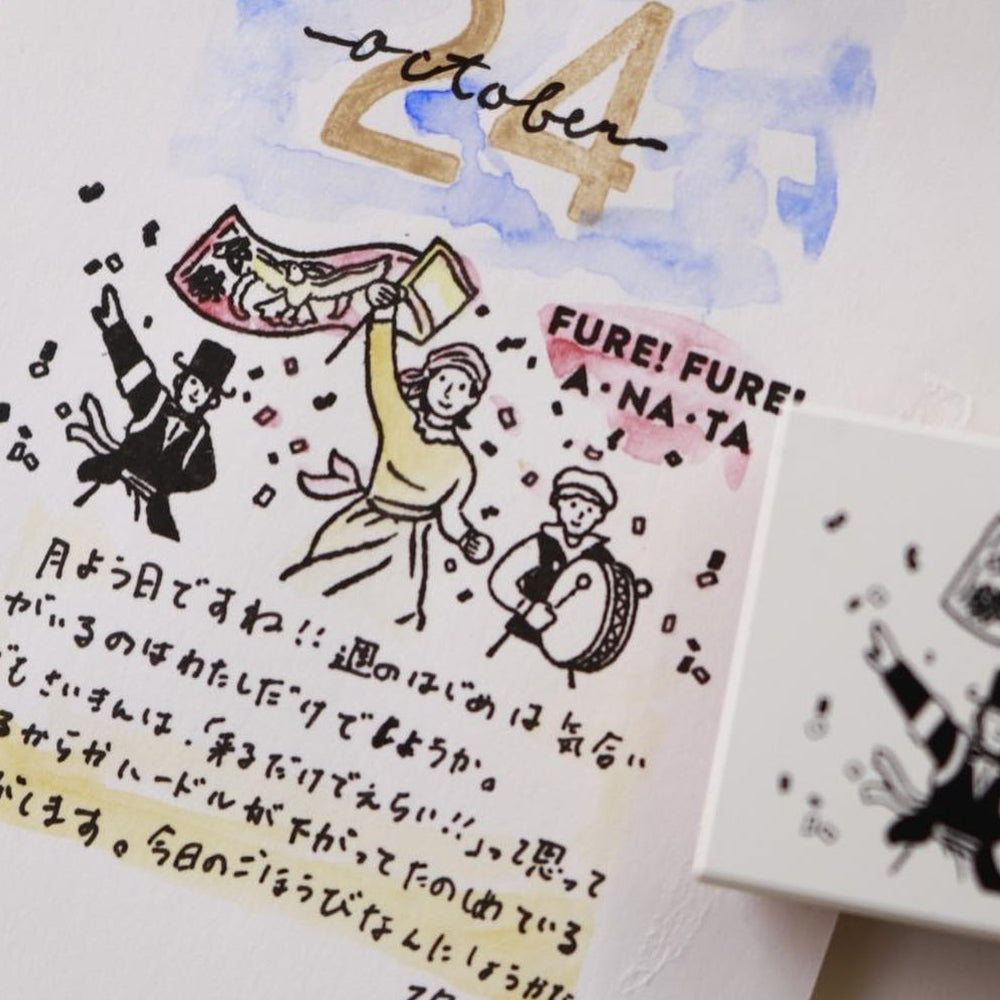 24
october
FURE! FURE!
A・NA・TA
月よう日ですね!!週のはじめは気合い
がいるのはわたしだけでしょうか。
でもさいきんは、「来るだけでえらい!!」って思って
るからかハードルが下がってたのしめている
がします。今日のごほうびなんにしようかな